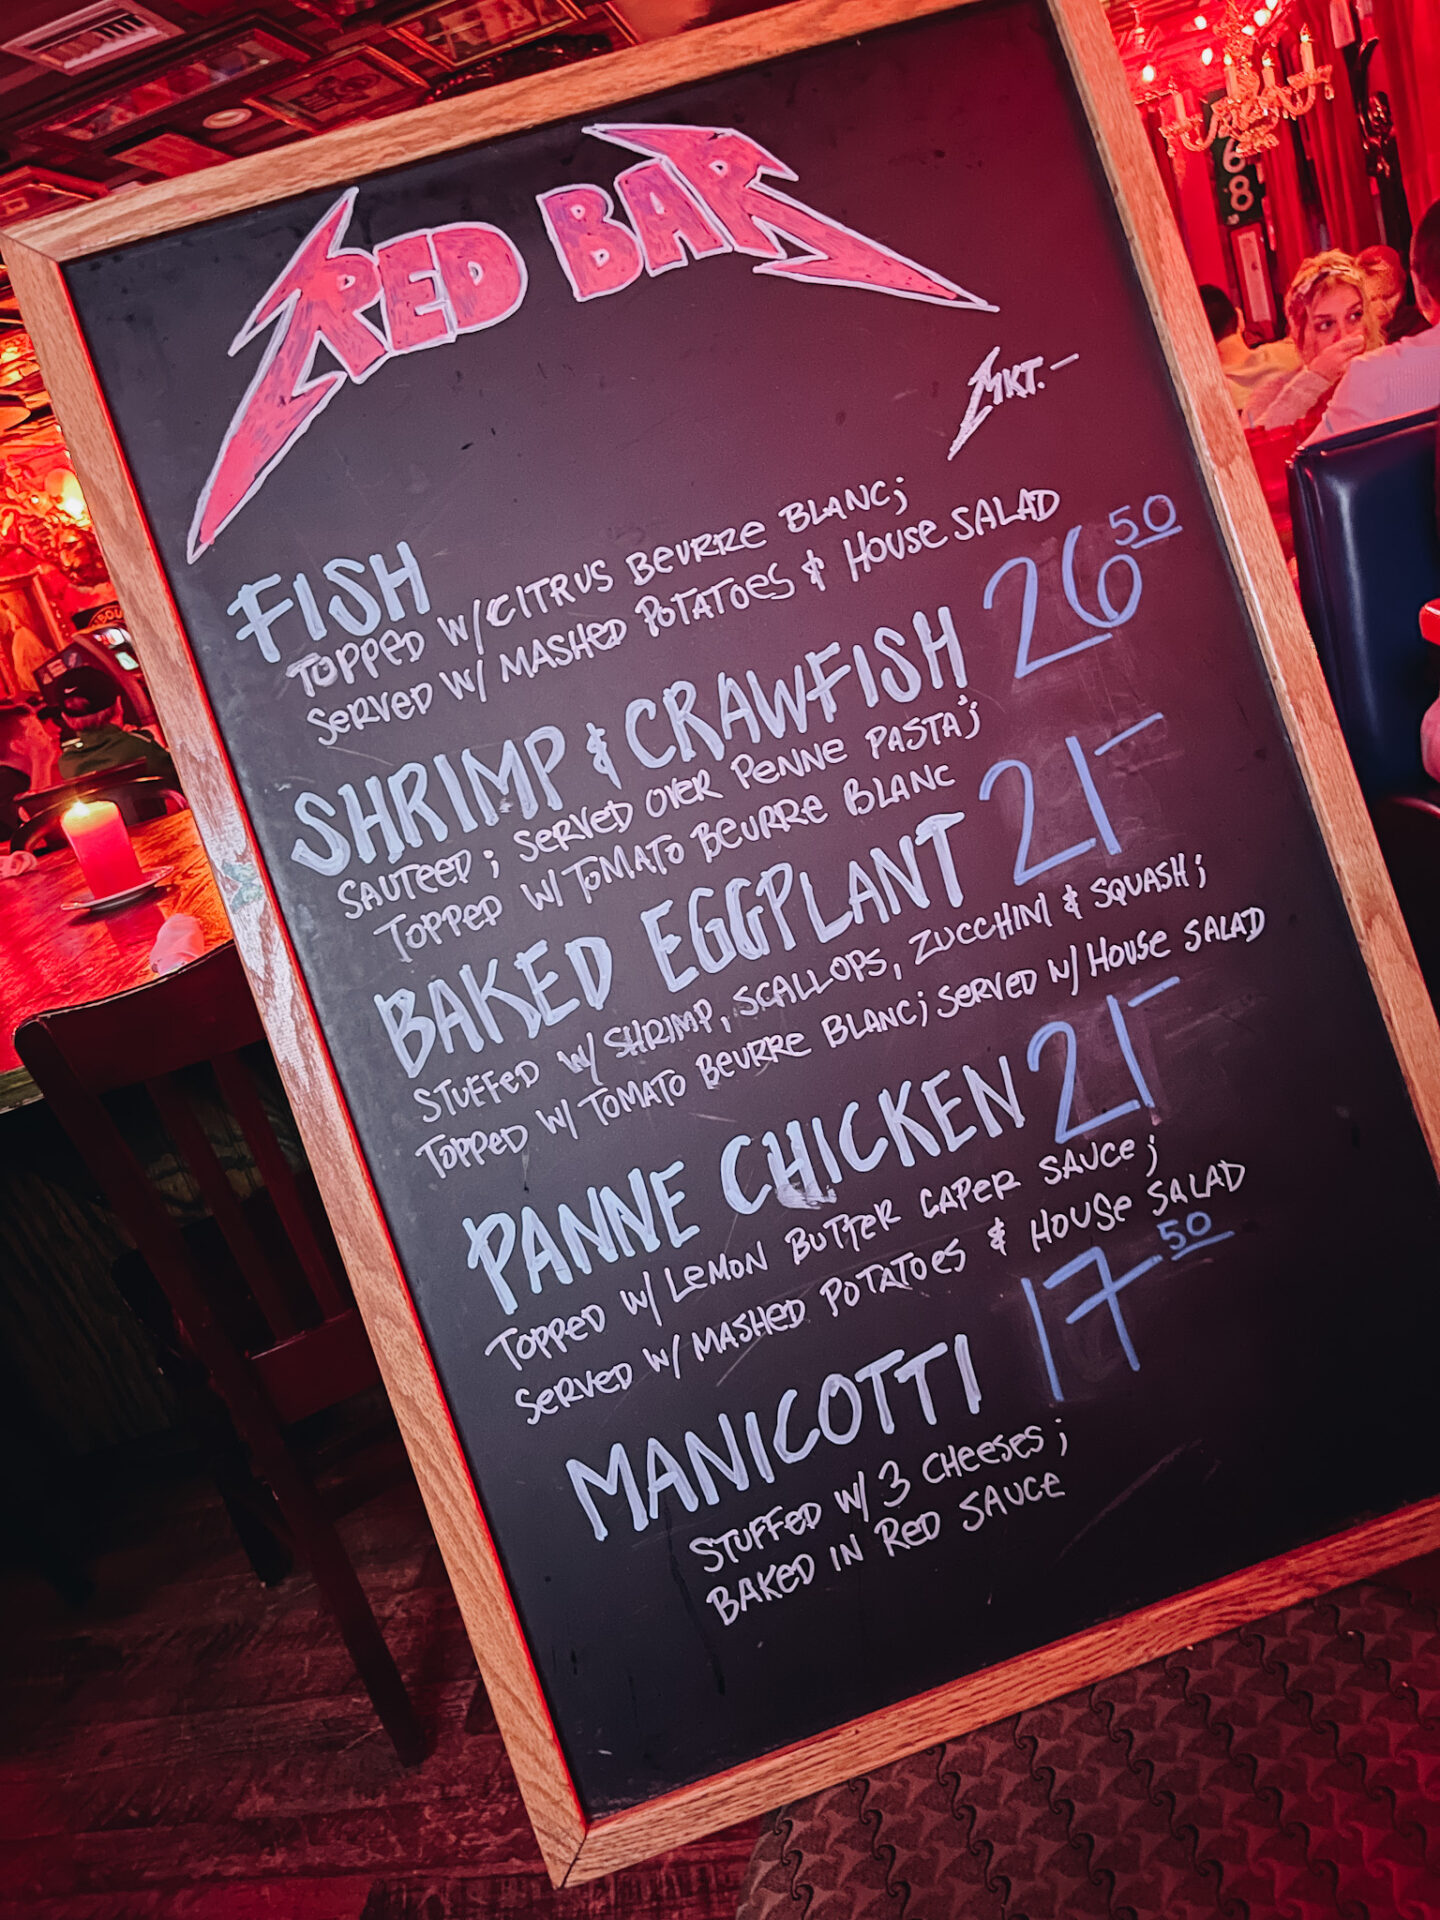 RED BAR
FISH MKT.-
TOPPED W/ CITRUS BEURRE BLANC;
SERVED W/ MASHED POTATOES & HOUSE SALAD
SHRIMP & CRAWFISH 26 50
SAUTEED; SERVED OVER PENNE PASTA;
TOPPED W/ TOMATO BEURRE BLANC
BAKED EGGPLANT 21-
STUFFED W/ SHRIMP, SCALLOPS, ZUCCHINI & SQUASH;
TOPPED W/ TOMATO BEURRE BLANC; SERVED W/ HOUSE SALAD
PANNE CHICKEN 21-
TOPPED W/ LEMON BUTTER CAPER SAUCE;
SERVED W/ MASHED POTATOES & HOUSE SALAD
MANICOTTI 17 50
STUFFED W/ 3 CHEESES;
BAKED IN RED SAUCE
68